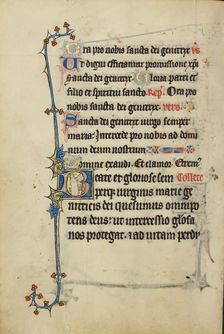 Ora pro nobis sancta dei genitrix
Ut digni efficiamur promissione xpi
sancta dei genitrix. Gloria patri et
filio et spiritui sancto Resp. Ora pro
nobis sancta dei genitrix. vers.
Sancta dei genitrix virgo semper
maria: Intercede pro nobis ad domi
num deum nostrum
Domine exaudi. Et clamor. Oremus
Beate et gloriose sem Collecte
perque virginis marie ge
nitricis dei quesumus omnipo
tens deus: ut intercessio gloriosa
nos protegat: et ad vitam perdu